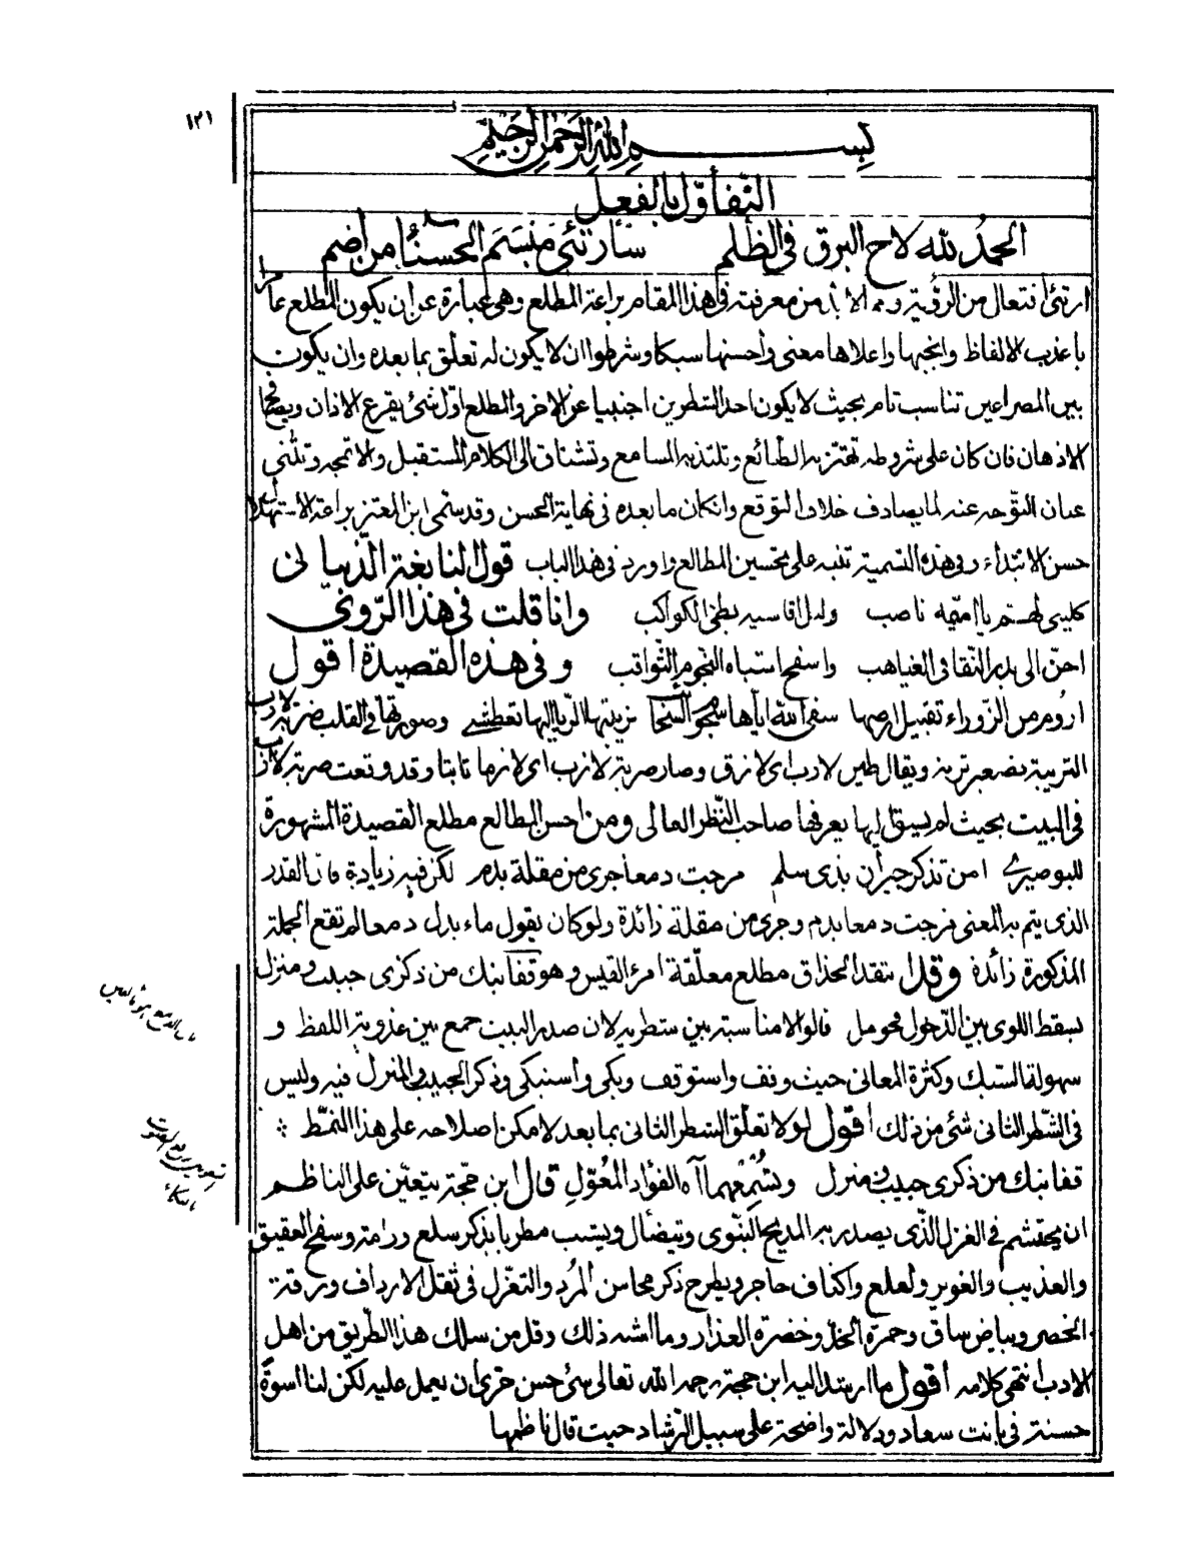 ١٢١
بسم الله الرحمن الرحيم
التفاؤل بالفعل
الحمد لله لاح البرق في الظلم سنا رتئ مبسم الحسناء من اضم
ارتئى افتعال من الرؤية ومما لابد من معرفته في هذا المقام براعة المطلع وهي عبارة عن ان يكون المطلع عامرا
باعذب الالفاظ وانجبها واعلاها معنى واحسنها سبكا وشرطوا ان لا يكون له تعلق بما بعده وان يكون
بين المصراعين تناسب تام بحيث لا يكون احد الشطرين اجنبيا عن الاخر والمطلع اول شئ يقرع الاذان ويصافح
الاذهان فان كان على شروطه تهتز به الطبائع وتلتذ به المسامع وتشتاق الى الكلام المستقبل والا تمجه وتثني
عنان التوجه عنه لما يصادف خلاف التوقع وان كان ما بعده في نهاية الحسن وقد سمى ابن المعتز براعة الاستهلال
حسن الابتداء وفي هذه التسمية تنبه على تحسين المطالع واورد في هذا الباب قول النابغة الذبياني
كليني لهم يا اميمة ناصب وليل اقاسيه بطئ الكواكب وانا قلت في هذا الروي
احن الى بدر النقا في الغياهب واسفح اشباه النجوم الثواقب وفي هذه القصيدة اقول
اروم من الزوراء تقبيل ارضها سقى الله اياها سجو السحائب تربتها الريا اليها تعطشي وصورتها في القلب ضربة لازب
التربية تصغير تربة ويقال طين لازب اي لازق وصار ضربة لازب اي لازما ثابتا وقد وقعت ضربة لازب
في البيت بحيث لم يسبق اليها يعرفها صاحب النظر العالي ومن احسن المطالع مطلع القصيدة المشهورة
للبوصيري امن تذكر جيران بذي سلم مزجت دمعا جرى من مقلة بدم لكن فيه زيادة فان القدر
الذي يتم به المعنى مزجت دمعا بدم وجرى من مقلة زائدة ولو كان يقول ماء بدل دمعا لم تقع الجملة
المذكورة زائدة وقد انتقد الحذاق مطلع معلقة امرء القيس وهو قفا نبك من ذكرى حبيب ومنزل
بسقط اللوى بين الدخول فحومل قالوا لا مناسبة بين شطريه لان صدر البيت جمع بين عذوبة اللفظ و
سهولة السبك وكثرة المعاني حيث وقف واستوقف وبكى واستبكى وذكر الحبيب والمنزل فيه وليس
في الشطر الثاني شئ من ذلك اقول لولا تعلق الشطر الثاني بما بعد لامكن اصلاحه على هذا النمط
قفا نبك من ذكرى حبيب ومنزل ونسمعهما آه الفؤاد المعول قال ابن حجة يتعين على الناظم
ان يحتشم في الغزل الذي يصدر به المديح النبوي ويتضأل ويتشبب مطربا بذكر سلع ورامة وسفح العقيق
والعذيب والغوير ولعلع واكناف حاجر ويطرح ذكر محاسن المرد والتغزل في ثقل الارداف ورقة
الخصر وبياض ساق وحمرة الخد وخضرة العذار وما اشبه ذلك وقل من سلك هذا الطريق من اهل
الادب انتهى كلامه اقول ما ارشد اليه ابن حجة رحمه الله تعالى شئ حسن حري ان يعمل عليه لكن لنا اسوة
حسنة في بانت سعاد ودلالة واضحة على سبيل الرشاد حيث قال ناظمها